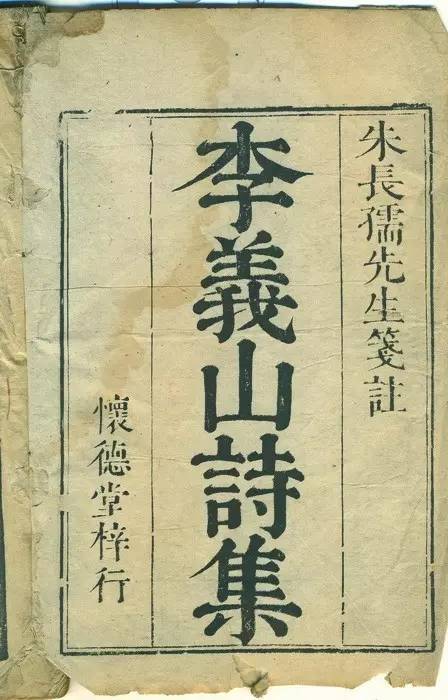 朱長孺先生箋註
李義山詩集
懷德堂梓行